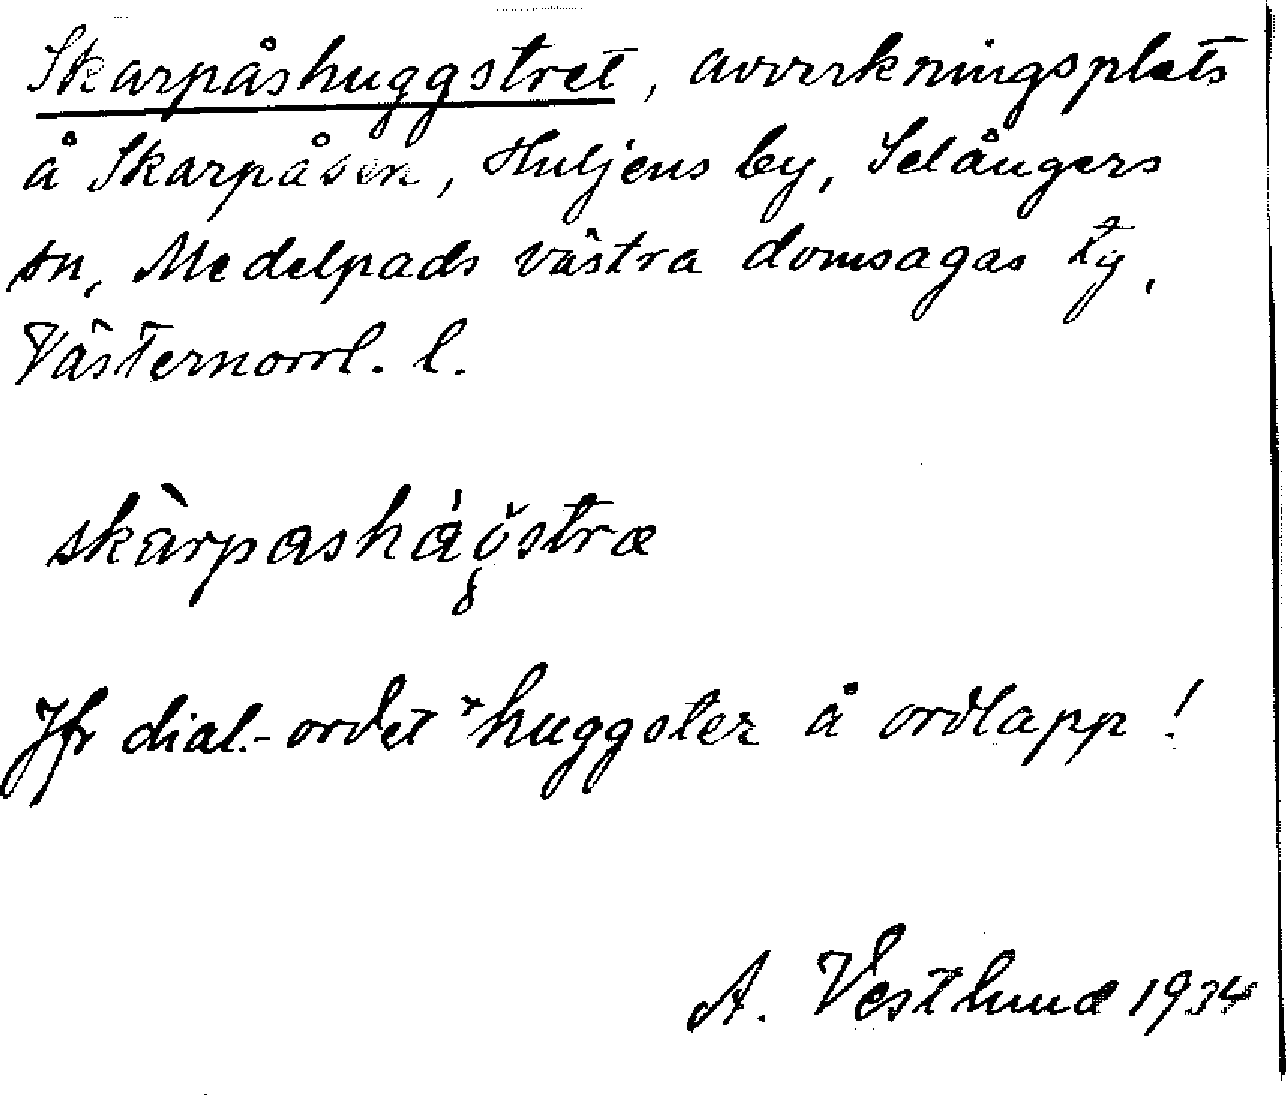 Skarpåshuggstret, avverkningsplats
å Skarpåsen, Huljens by, Selångers
sn, Medelpads västra domsagas tg,
Västernorrl. l.
skàrpashág̥östræ
Jfr dial.-ordet *huggster å ordlapp!
A. Vestlund 1934